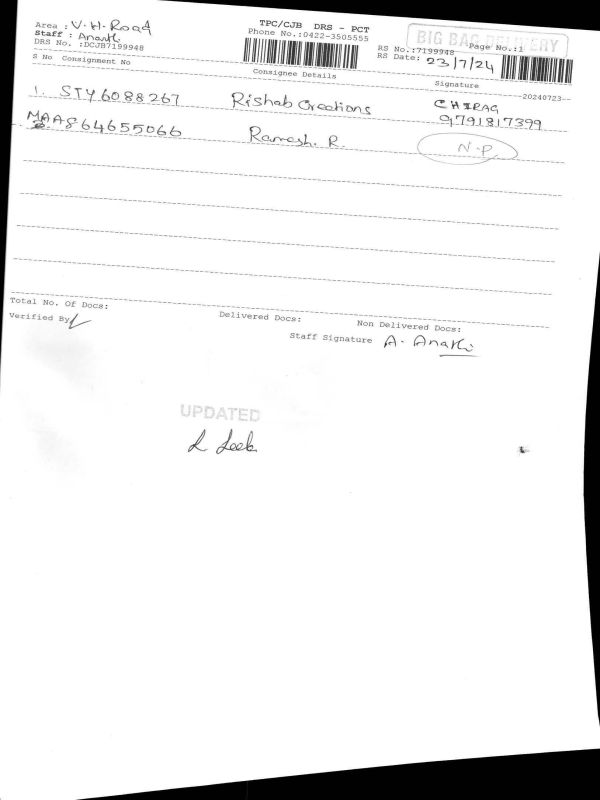 TPC/CJB DRS - PCT
BIG BAG DELIVERY
Area : V.H. Road
Phone No.:0422-3505555
Staff : Ananthi
RS No.:7199948 Page No.:1
DRS No. :DCJB7199948
RS Date: 23/7/24
S No Consignment No Consignee Details Signature
--20240723--
1. STY6088267 Rishab Creations CHIRAG
9791817399
2. MAA864655066 Ramesh. R. N.P.
Total No. Of Docs: Delivered Docs: Non Delivered Docs:
Verified By
Staff Signature A. Ananthi
UPDATED